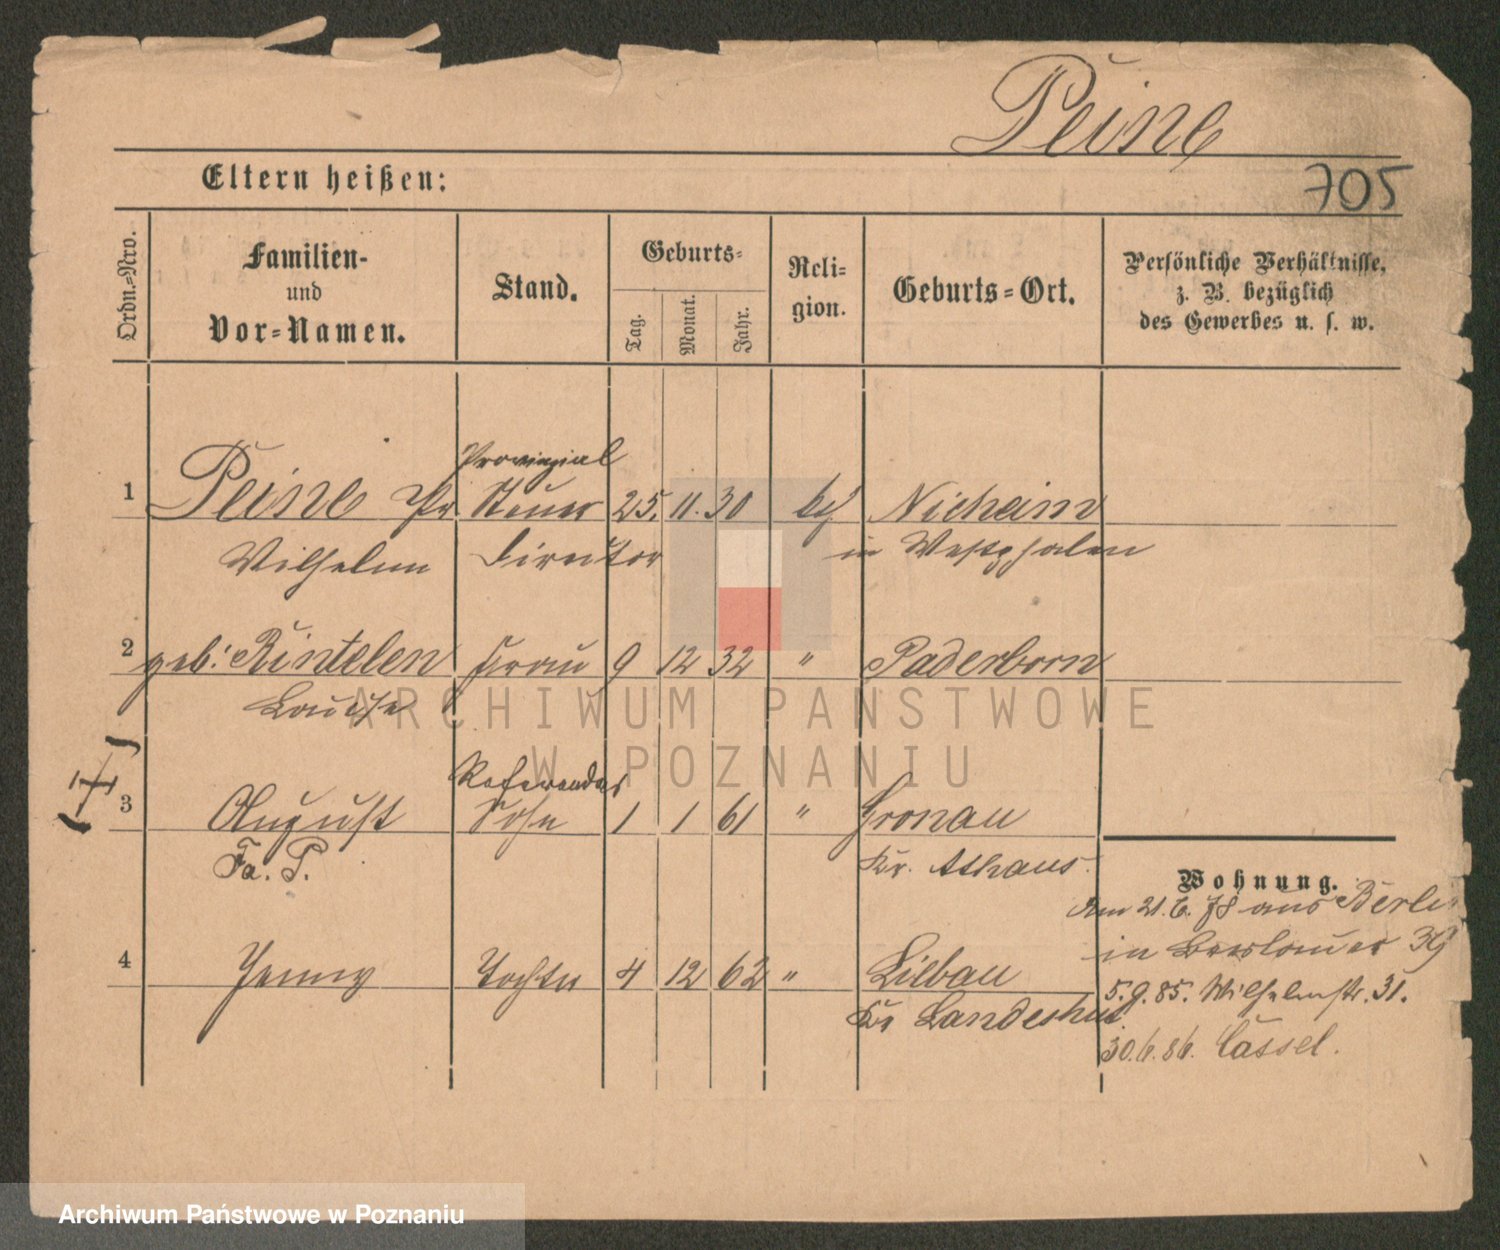 Peine
705
Eltern heißen:
Ordn.=Nro.
Familien-
und
Vor=Namen.
Stand.
Geburts=
Tag.
Monat.
Jahr.
Reli=
gion.
Geburts=Ort.
Persönliche Verhältnisse,
z. B. bezüglich
des Gewerbes u. s. w.
Provinzial
1 Peine Steuer 25. 11. 30 Nieheim
Wilhelm Director in Westphalen
2 geb: Rintelen Frau 9 12 32 " Paderborn
Louise
Referendar
3 August Sohn 1 1 61 " Gronau
Fa. P. Kr. Athaus.
Wohnung.
Am 21. 6. 78 aus Berlin
in Breslauer 39
4 Jenny Tochter 4 12 62 " Liebau
5. 9. 85. Wilhelmstr. 31.
Kr Landeshut
30. 6. 86. Cassel.
ARCHIWUM PAŃSTWOWE
W POZNANIU
Archiwum Państwowe w Poznaniu